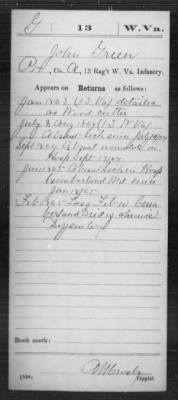 G | 13 | W. Va.
John Green
Pvt., Co. A, 13 Reg't W. Va. Infantry.
Appears on Returns as follows:
Jan 1863 (13 Va) detailed
as Wood cutter
July & Aug 1864 (13 W Va)
Absent sick since July
Sept 1864 Absent wounded in
Hosp Sept
Jan 1865 Absent sick in Hosp
Cumberland Md since
Jan
Feb 1865 Loss Feb 10 Cum
berland Died of chronic
Dysentery
Book mark:
(546)
Copyist.